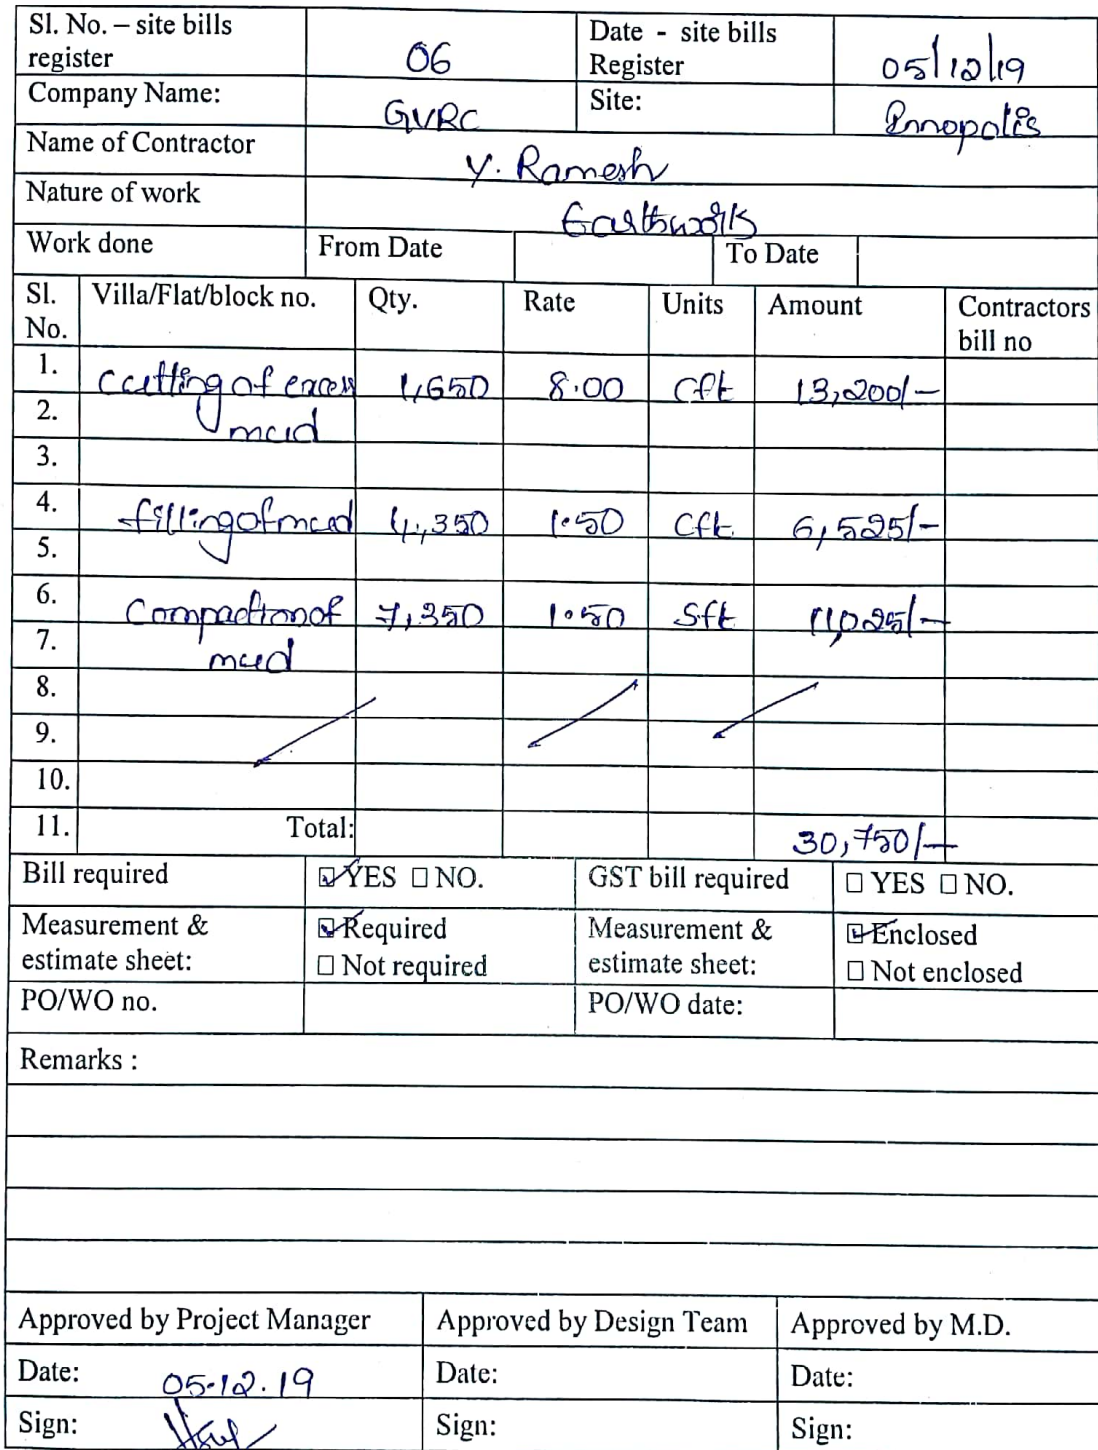 Sl. No. – site bills register 06 Date - site bills Register 05/12/19
Company Name: GVRC Site: Innopolis
Name of Contractor Y. Ramesh
Nature of work Earthwork
Work done From Date To Date
Sl. No. Villa/Flat/block no. Qty. Rate Units Amount Contractors bill no
1. cutting of excess 1,650 8.00 Cft 13,200/-
2. mud
3.
4. filling of mud 4,350 1.50 Cft 6,525/-
5.
6. Compaction of 7,350 1.50 Sft 11,025/-
7. mud
8.
9.
10.
11. Total: 30,750/-
Bill required ☑ YES □ NO. GST bill required □ YES □ NO.
Measurement & estimate sheet: ☑ Required □ Not required Measurement & estimate sheet: ☑ Enclosed □ Not enclosed
PO/WO no. PO/WO date:
Remarks :
Approved by Project Manager Approved by Design Team Approved by M.D.
Date: 05.12.19 Date: Date:
Sign: Sign: Sign: